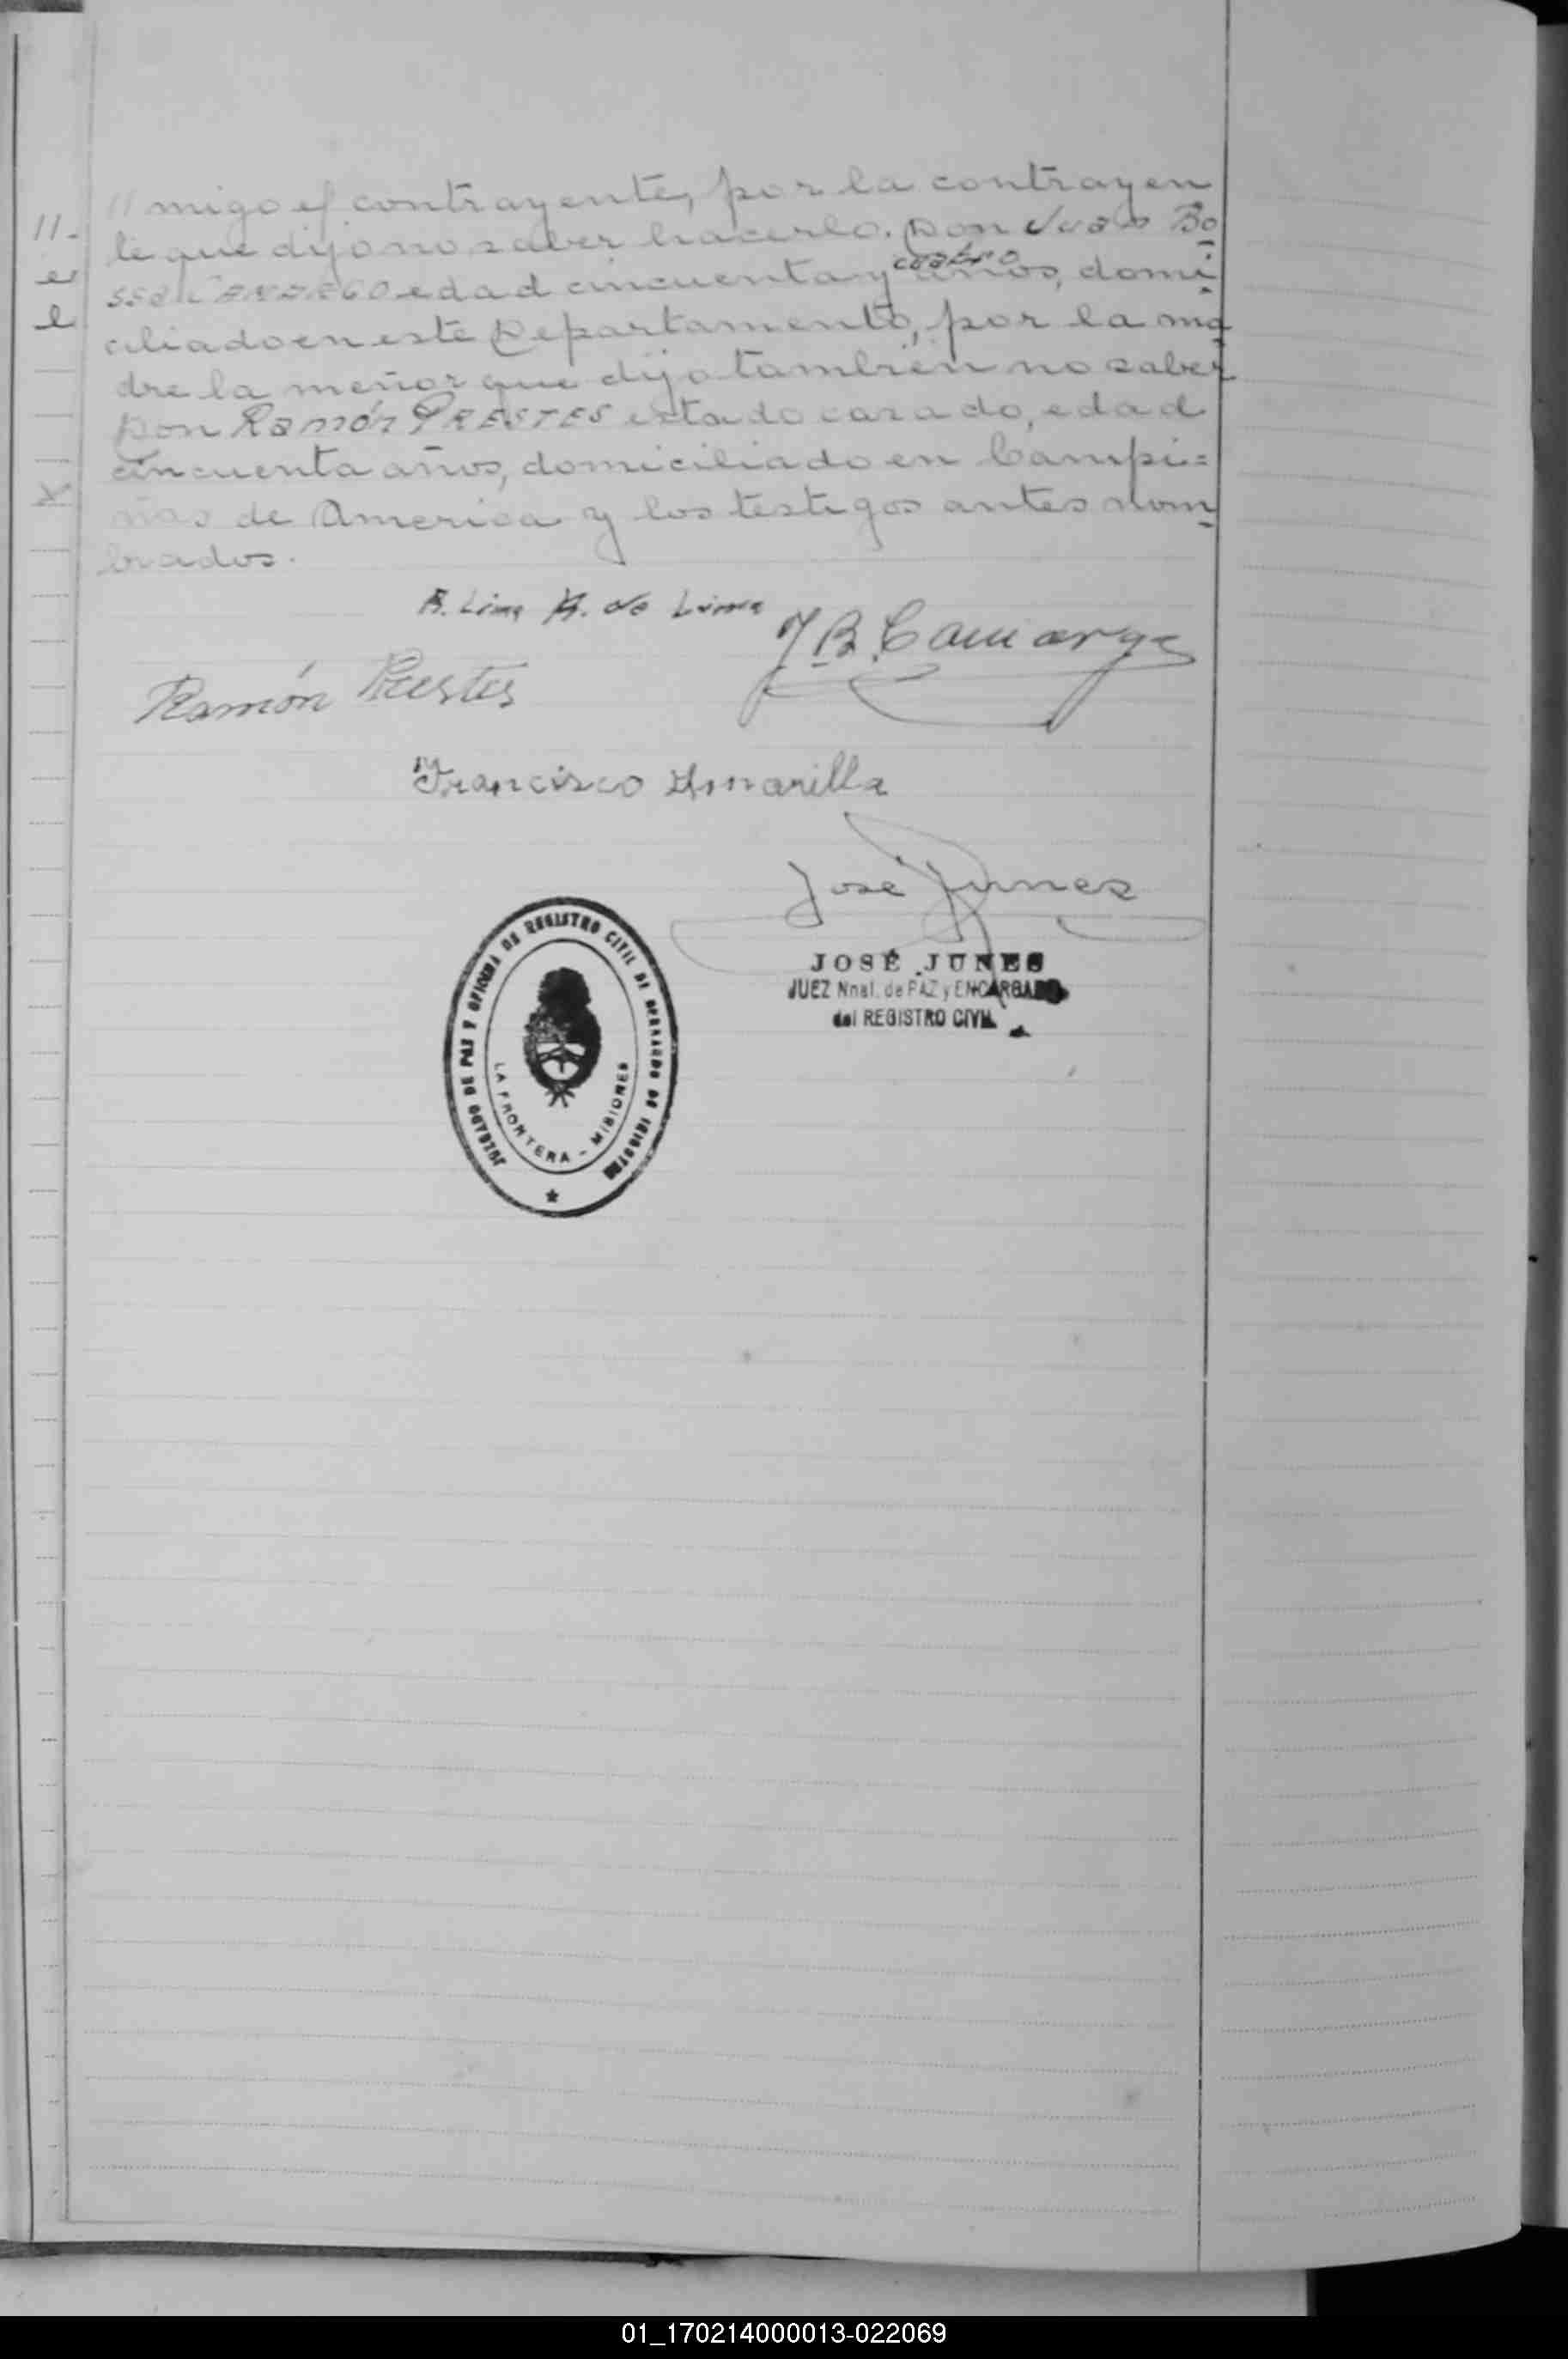 // migo el contrayente, por la contrayen
te que dijo no saber hacerlo. Don Juan Bo
edad cincuenta y cuatro años, domi
ciliado en este Departamento, por la ma
dre la menor que dijo también no saber
Don Ramón PRESTES estado casado, edad
cincuenta años, domiciliado en Campi=
ñas de America y los testigos antes nom
brados.
R. Lima de Lima
J B Camargo
Ramón Prestes
Francisco Amarilla
José Junes
JOSÉ JUNES
JUEZ Nnal. de PAZ y ENCARGADO
del REGISTRO CIVIL
JUZGADO DE PAZ Y OFICINA DE REGISTRO CIVIL DE BERNARDO DE IRIGOYEN
LA FRONTERA - MISIONES
01_170214000013-022069